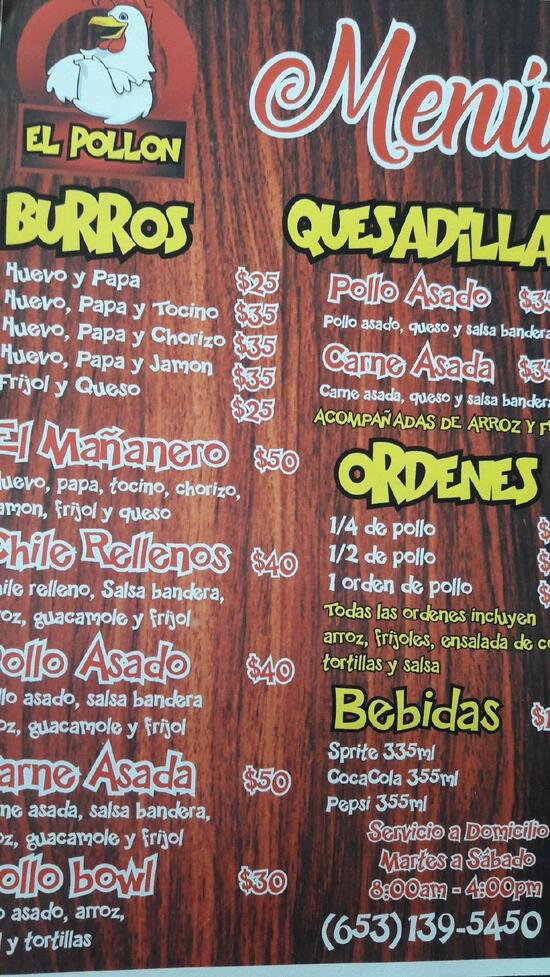 EL POLLON
Menú
BURROS
Huevo y Papa $25
Huevo, Papa y Tocino $35
Huevo, Papa y Chorizo $35
Huevo, Papa y Jamon $35
Frijol y Queso $25
El Mañanero $50
huevo, papa, tocino, chorizo,
jamon, frijol y queso
Chile Rellenos $40
chile relleno, Salsa bandera,
arroz, guacamole y frijol
Pollo Asado $40
pollo asado, salsa bandera
arroz, guacamole y frijol
Carne Asada $50
carne asada, salsa bandera,
arroz, guacamole y frijol
Pollo bowl $30
pollo asado, arroz,
y tortillas
QUESADILLA
Pollo Asado
Pollo asado, queso y salsa bandera
Carne Asada
Carne asada, queso y salsa bandera
ACOMPAÑADAS DE ARROZ Y
ORDENES
1/4 de pollo
1/2 de pollo
1 orden de pollo
Todas las ordenes incluyen
arroz, frijoles, ensalada de
tortillas y salsa
Bebidas
Sprite 335ml
CocaCola 355ml
Pepsi 355ml
Servicio a Domicilio
Martes a Sábado
8:00am - 4:00pm
(653) 139-5450